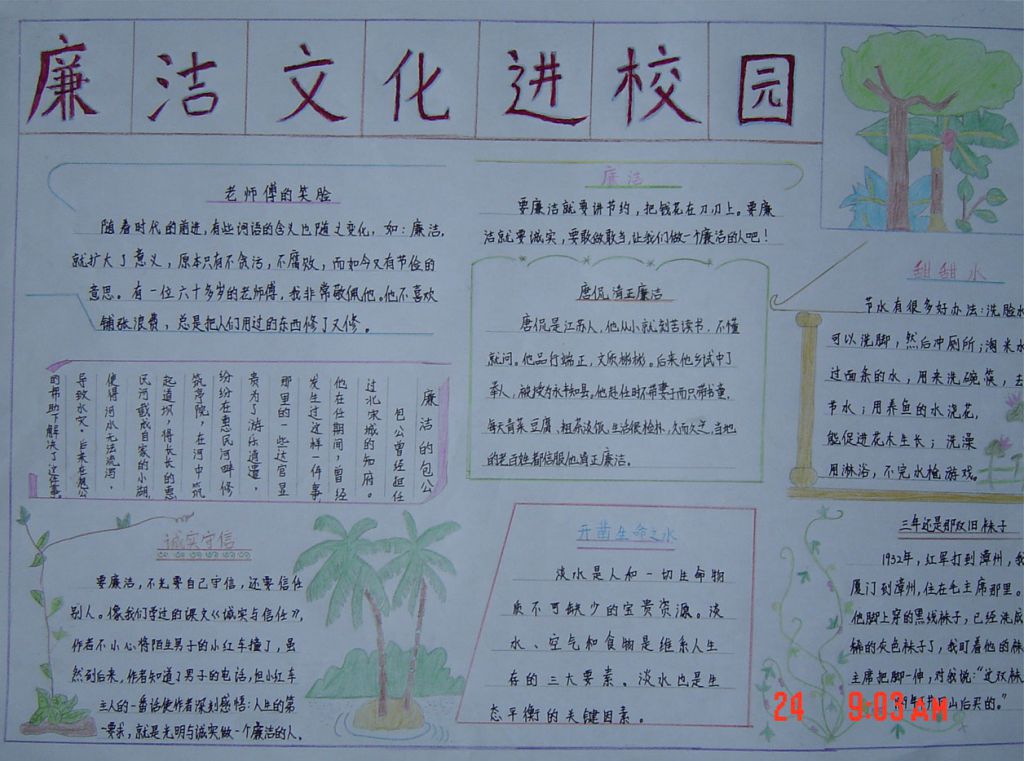 廉洁文化进校园
老师傅的笑脸
随着时代的前进,有些词语的含义也随之变化,如:廉洁,
就扩大了意义,原本只有不贪污,不腐败,而如今又有节俭的
意思。有一位六十多岁的老师傅,我非常敬佩他。他不喜欢
铺张浪费,总是把人们用过的东西修了又修。
廉洁
要廉洁就要讲节约,把钱花在刀刃上。要廉
洁就要诚实,要敢做敢当,让我们做一个廉洁的人吧!
唐侃清正廉洁
唐侃是江苏人,他从小就刻苦读书,不懂
就问。他品行端正,文质彬彬。后来他乡试中了
举人,被授为永丰知县,他赴任时不带妻子而只带书童,
每天青菜豆腐、粗茶淡饭,生活很俭朴,久而久之,当地
的老百姓都信服他清正廉洁。
甜甜水
节水有很多好办法:洗脸水
可以洗脚,然后冲厕所;淘米水
过面条的水,用来洗碗筷,去
节水;用养鱼的水浇花,
能促进花木生长;洗澡
用淋浴,不完水槍游戏。
廉洁的包公
包公曾经担任
过北宋城的知府。
他在任期间,曾经
发生过这样一件事
那里的一些达官显
贵为了游乐逍遥,
纷纷在惠民河畔修
筑亭院,在河中筑
起道坝,将长长的惠
民河截成自家的小湖
使得河水无法流泻,
导致水灾。后来在包公
的帮助下解决了这件事
诚实守信
要廉洁,不光要自己守信,还要信任
别人。像我们学过的课文《诚实与信任》,
作者不小心将陌生男子的小红车撞了,虽
然到后来,作者知道了男子的电话,但小红车
主人的一番话使作者深刻感悟:人生的第
一要求,就是光明与诚实做一个廉洁的人。
开凿生命之水
淡水是人和一切生命物
质不可缺少的宝贵资源。淡
水、空气和食物是维系人生
存的三大要素。淡水也是生
态平衡的关键因素。
三年还是那双旧袜子
1932年,红军打到漳州,我
厦门到漳州,住在毛主席那里。
他脚上穿的黑线袜子,已经洗成
稀的灰色袜子了,我盯着他的袜
主席把脚一伸,对我说:"这双袜
山后买的。"
24 9:03 AM